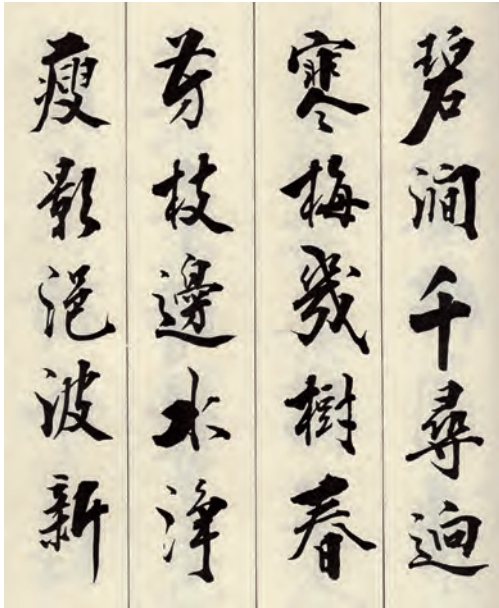 碧澗千尋迥
寒梅幾樹春
芳枝邊水淨
瘦影浥波新